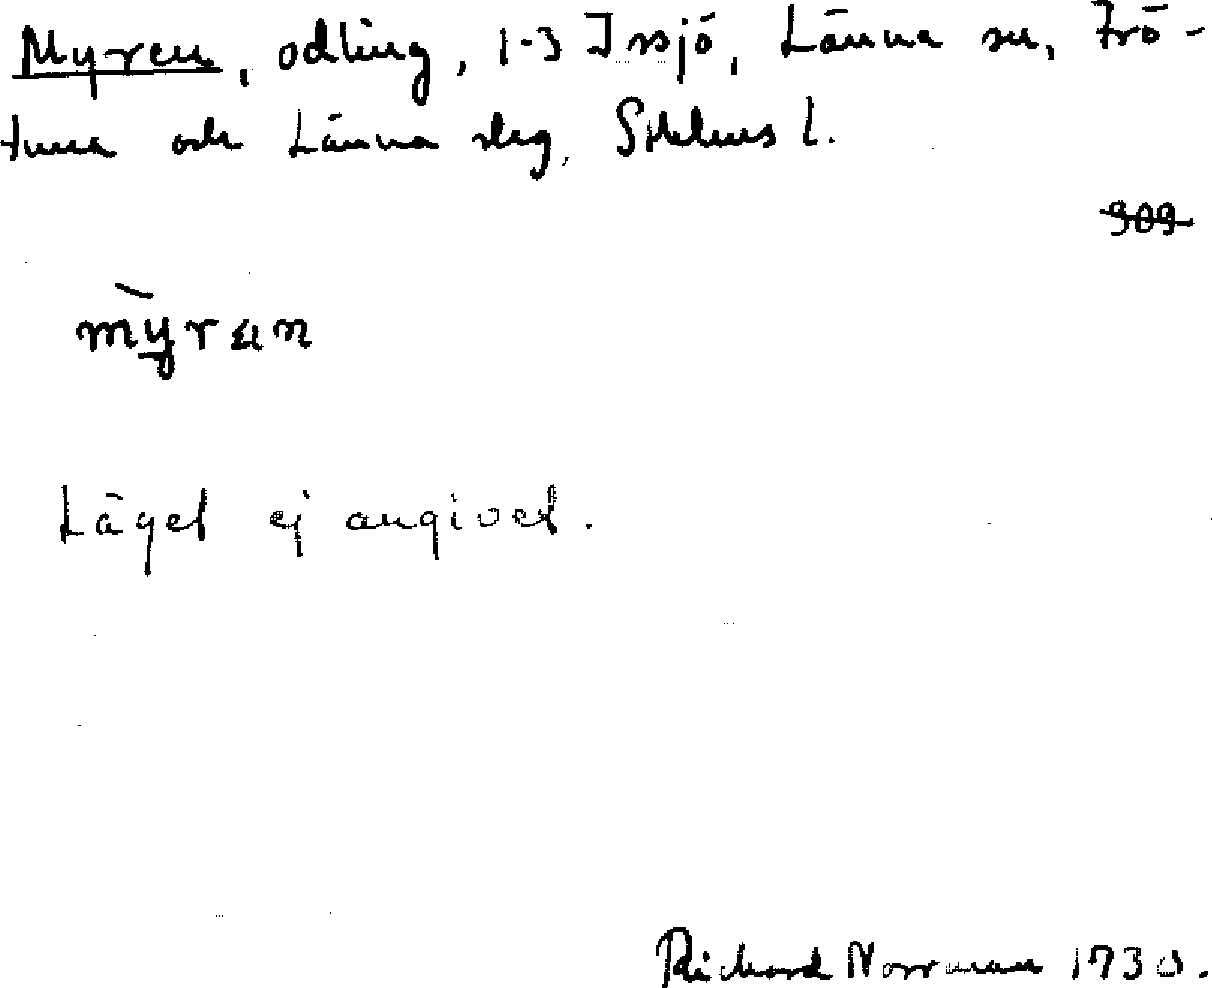 Myren, odling, 1-3 Issjö, Länna sn, Frö-
tuna och Länna skg, Sthlms l.
909
mỳran
Läget ej angivet.
Richard Norrman 1930.